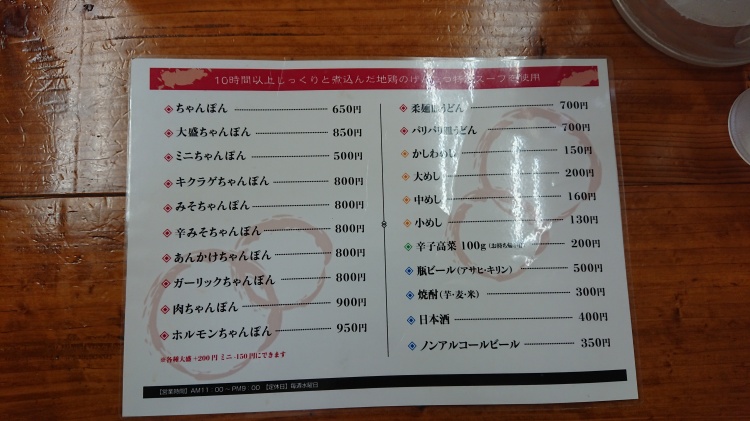 10時間以上じっくりと煮込んだ地鶏のげんこつ特製スープを使用
ちゃんぽん 650円
大盛ちゃんぽん 850円
ミニちゃんぽん 500円
キクラゲちゃんぽん 800円
みそちゃんぽん 800円
辛みそちゃんぽん 800円
あんかけちゃんぽん 800円
ガーリックちゃんぽん 800円
肉ちゃんぽん 900円
ホルモンちゃんぽん 950円
※各種大盛+200円 ミニ-150円にできます
柔麺皿うどん 700円
パリパリ皿うどん 700円
かしわめし 150円
大めし 200円
中めし 160円
小めし 130円
辛子高菜 100g 200円
瓶ビール(アサヒ・キリン) 500円
焼酎(芋・麦・米) 300円
日本酒 400円
ノンアルコールビール 350円
【営業時間】AM11:00～PM9:00 【定休日】毎週水曜日